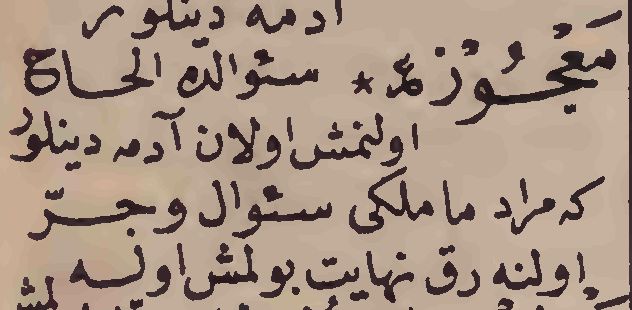 آدمه دینلور
مَعْجُوُزْ ٭ سئوالده الحاح
اولنمش اولان آدمه دینلور
که مراد ماملکی سئوال و جرّ
اولنه رق نهایت بولمش اوله